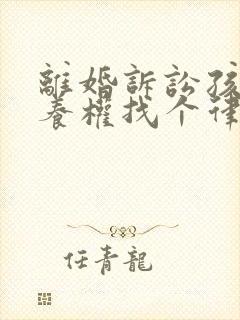 離婚訴訟孩
養權找个律
任青龍